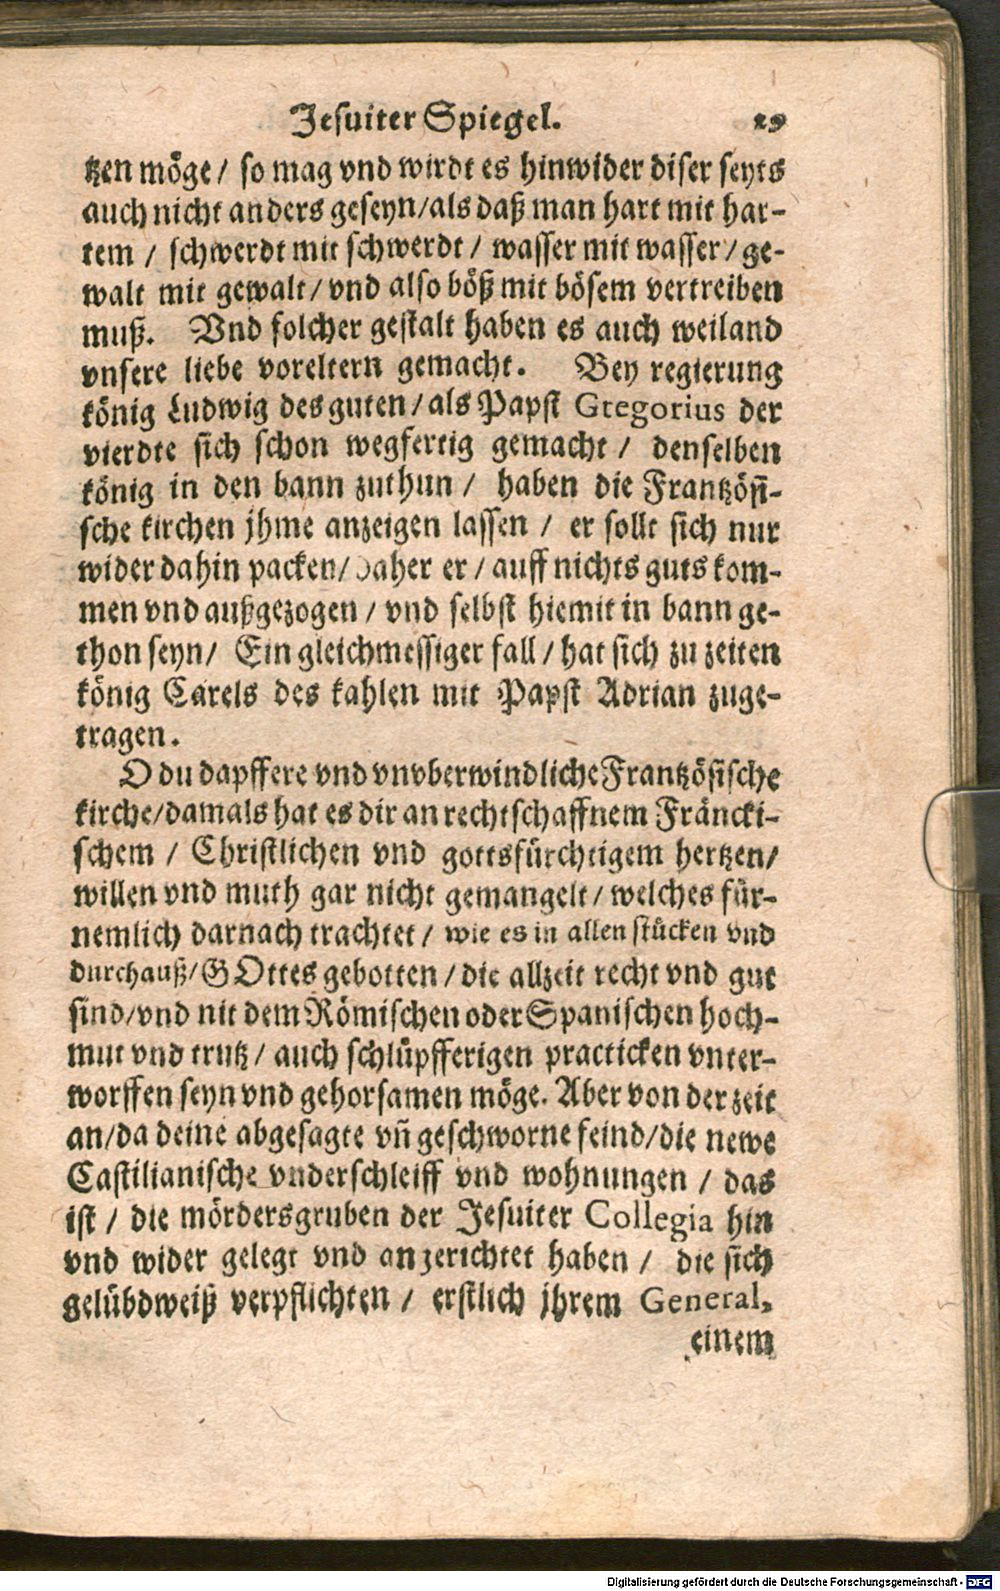 Jesuiter Spiegel. 29
tzen möge/ so mag vnd wirdt es hinwider diser seyts
auch nicht anders geseyn/als daß man hart mit har-
tem / schwerdt mit schwerdt / wasser mit wasser/ ge-
walt mit gewalt/ vnd also böß mit bösem vertreiben
muß. Vnd solcher gestalt haben es auch weiland
vnsere liebe voreltern gemacht. Bey regierung
könig Ludwig des guten/ als Papst Gregorius der
vierdte sich schon wegfertig gemacht / denselben
könig in den bann zuthun / haben die Frantzösi-
sche kirchen jhme anzeigen lassen / er sollt sich nur
wider dahin packen/ daher er / auff nichts guts kom-
men vnd außgezogen / vnd selbst hiemit in bann ge-
thon seyn/ Ein gleichmessiger fall / hat sich zu zeiten
könig Carels des kahlen mit Papst Adrian zuge-
tragen.
O du dapffere vnd vnvberwindliche Frantzösische
kirche/damals hat es dir an rechtschaffnem Fräncki-
schem / Christlichen vnd gottsfürchtigem hertzen/
willen vnd muth gar nicht gemangelt / welches für-
nemlich darnach trachtet / wie es in allen stücken vnd
durchauß/ GOttes gebotten / die allzeit recht vnd gut
sind/vnd nit dem Römischen oder Spanischen hoch-
mut vnd trutz / auch schlüpfferigen practicken vnter-
worffen seyn vnd gehorsamen möge. Aber von der zeit
an/da deine abgesagte vn̄ geschworne feind/die newe
Castilianische vnderschleiff vnd wohnungen / das
ist / die mördersgruben der Jesuiter Collegia hin
vnd wider gelegt vnd angerichtet haben / die sich
gelübdweiß verpflichten / erstlich jhrem General,
einem
Digitalisierung gefördert durch die Deutsche Forschungsgemeinschaft - DFG